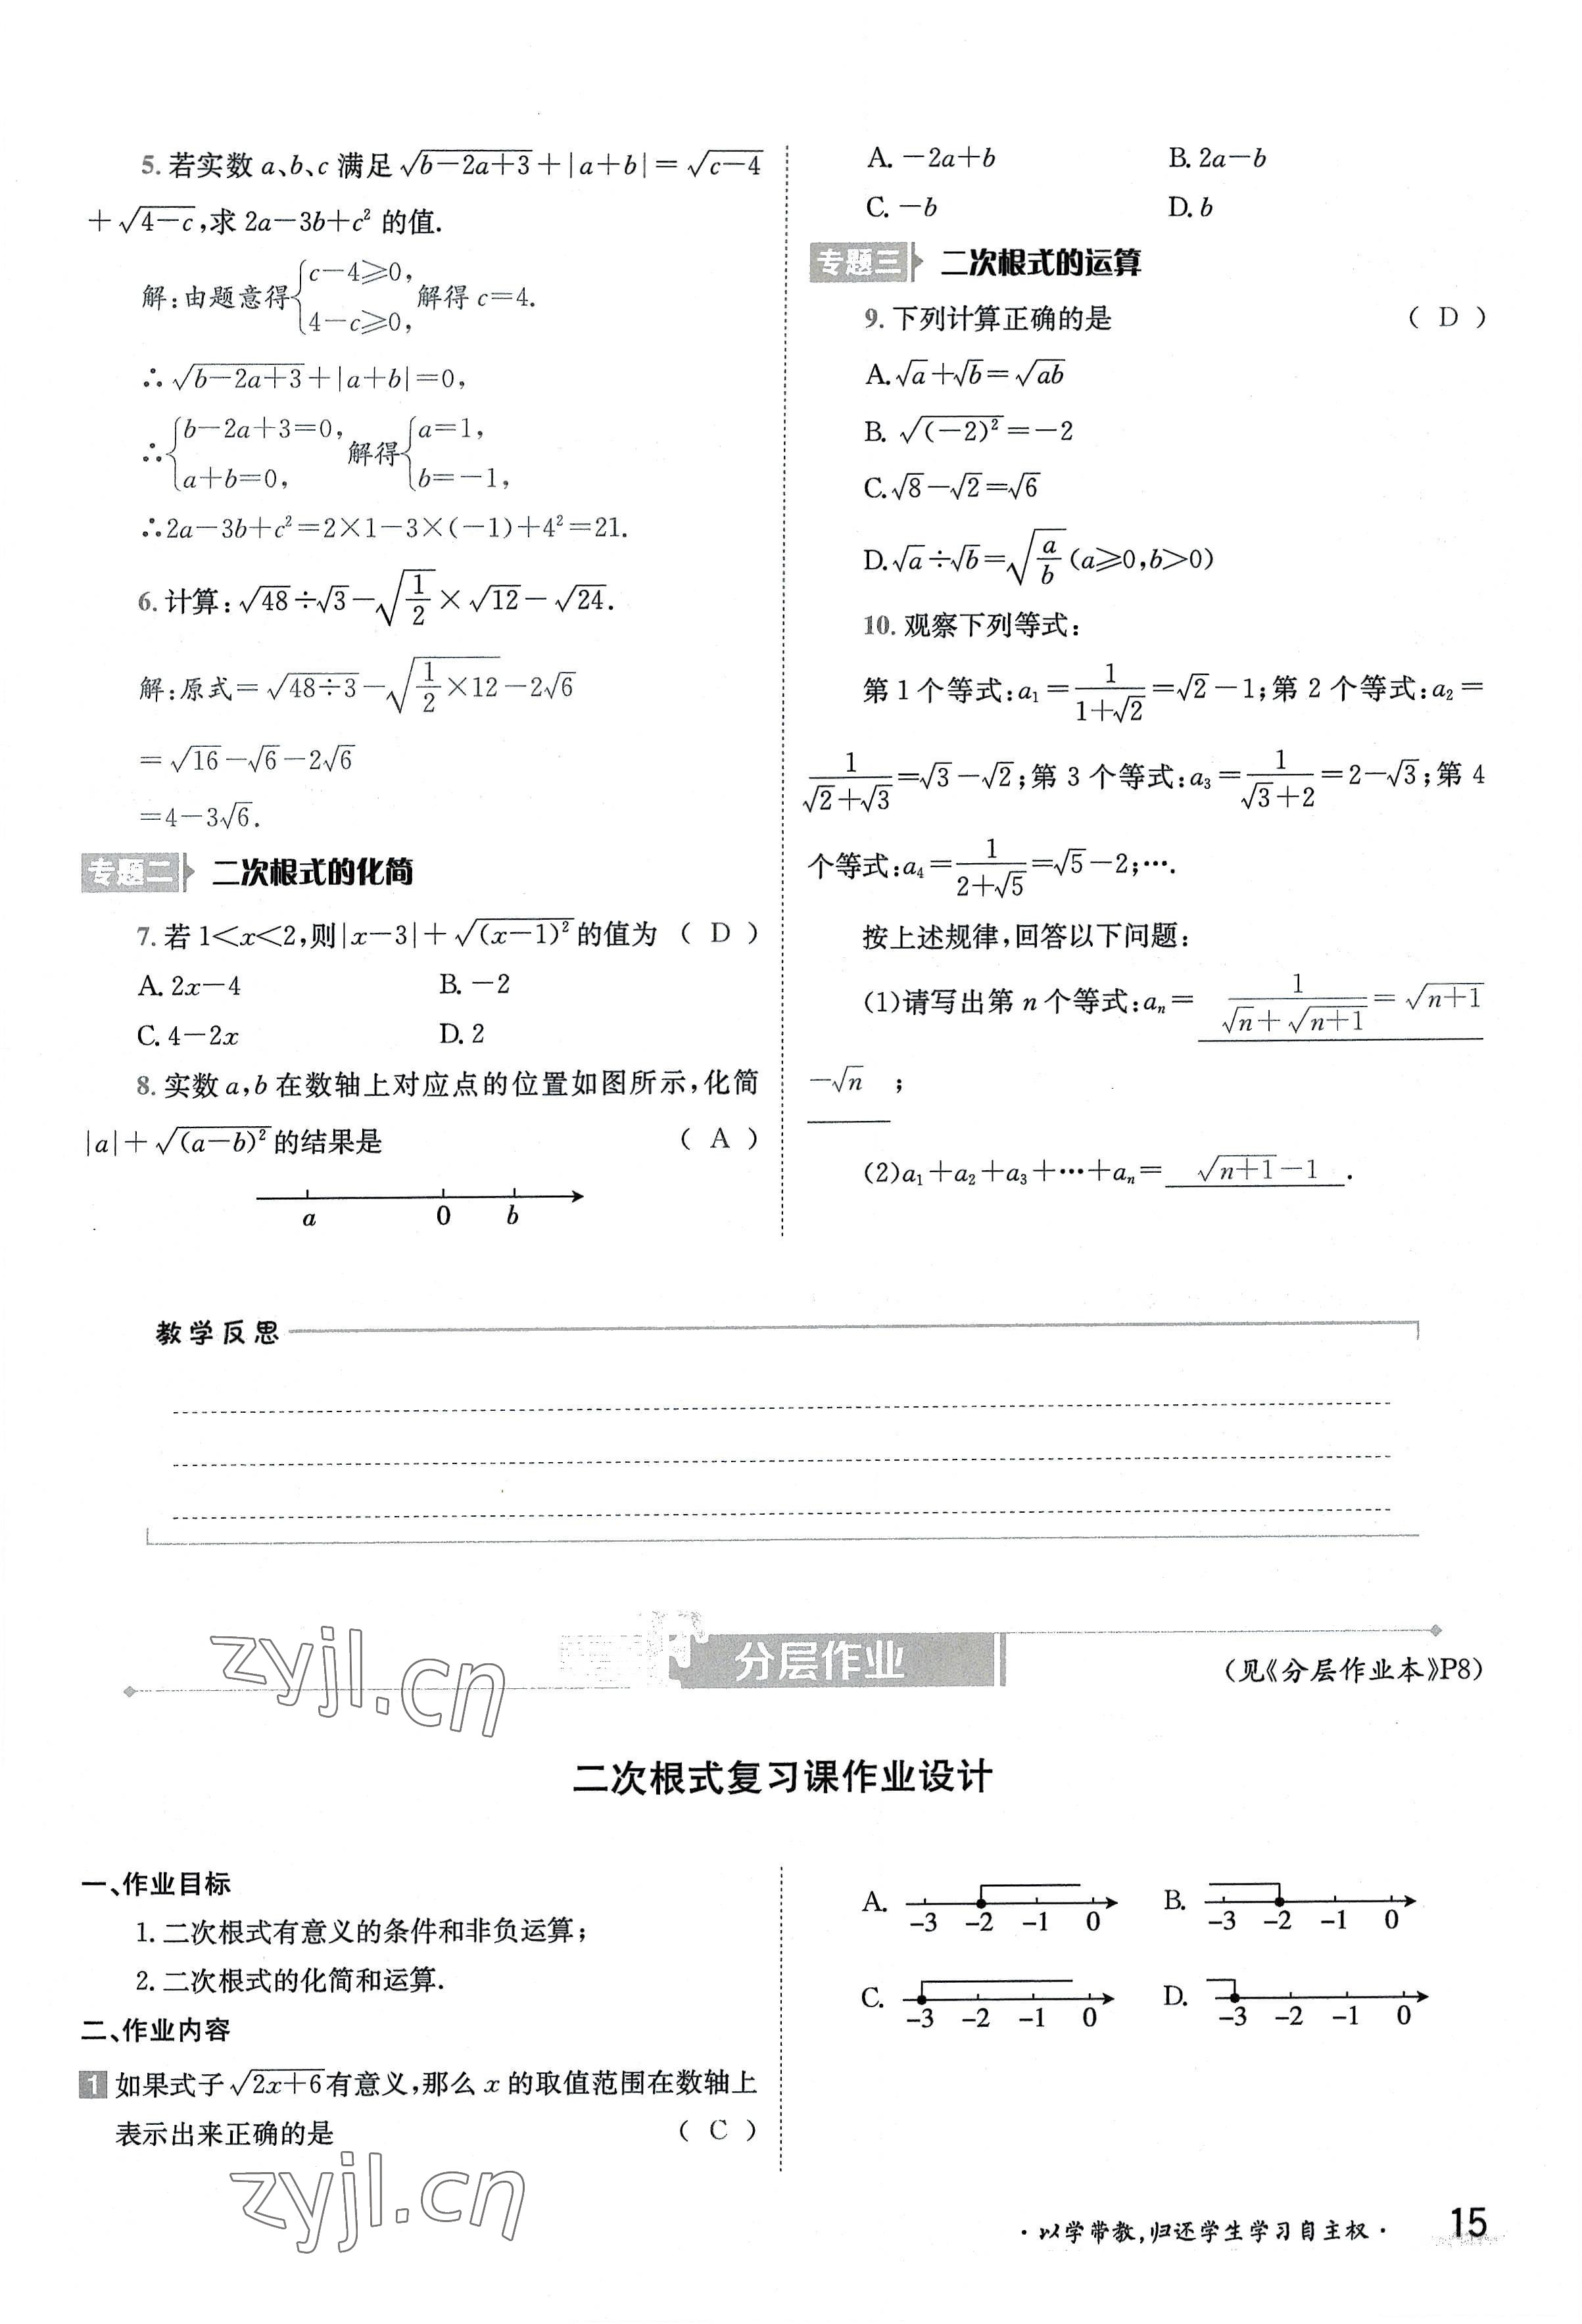 5. 若实数 a、b、c 满足 √(b−2a+3)+|a+b|=√(c−4)
+√(4−c),求 2a−3b+c² 的值.
解:由题意得{c−4≥0, 4−c≥0, 解得 c=4.
∴√(b−2a+3)+|a+b|=0,
∴{b−2a+3=0, a+b=0, 解得{a=1, b=−1,
∴2a−3b+c²=2×1−3×(−1)+4²=21.
6. 计算:√48÷√3−√(1/2)×√12−√24.
解:原式=√(48÷3)−√(1/2×12)−2√6
=√16−√6−2√6
=4−3√6.
专题二 二次根式的化简
7. 若 1<x<2,则|x−3|+√((x−1)²)的值为 ( D )
A. 2x−4 B. −2
C. 4−2x D. 2
8. 实数 a,b 在数轴上对应点的位置如图所示,化简
|a|+√((a−b)²)的结果是 ( A )
a 0 b
A. −2a+b B. 2a−b
C. −b D. b
专题三 二次根式的运算
9. 下列计算正确的是 ( D )
A. √a+√b=√(ab)
B. √((−2)²)=−2
C. √8−√2=√6
D. √a÷√b=√(a/b)(a≥0,b>0)
10. 观察下列等式:
第 1 个等式:a₁=1/(1+√2)=√2−1;第 2 个等式:a₂=
1/(√2+√3)=√3−√2;第 3 个等式:a₃=1/(√3+2)=2−√3;第 4
个等式:a₄=1/(2+√5)=√5−2;….
按上述规律,回答以下问题:
(1)请写出第 n 个等式:aₙ= 1/(√n+√(n+1))=√(n+1)
−√n ;
(2)a₁+a₂+a₃+…+aₙ= √(n+1)−1 .
教学反思
分层作业
(见《分层作业本》P8)
zyjl.cn
二次根式复习课作业设计
一、作业目标
1. 二次根式有意义的条件和非负运算;
2. 二次根式的化简和运算.
二、作业内容
1 如果式子√(2x+6)有意义,那么 x 的取值范围在数轴上
表示出来正确的是 ( C )
A. −3 −2 −1 0 B. −3 −2 −1 0
C. −3 −2 −1 0 D. −3 −2 −1 0
zyjl.cn
·以学带教,归还学生学习自主权· 15